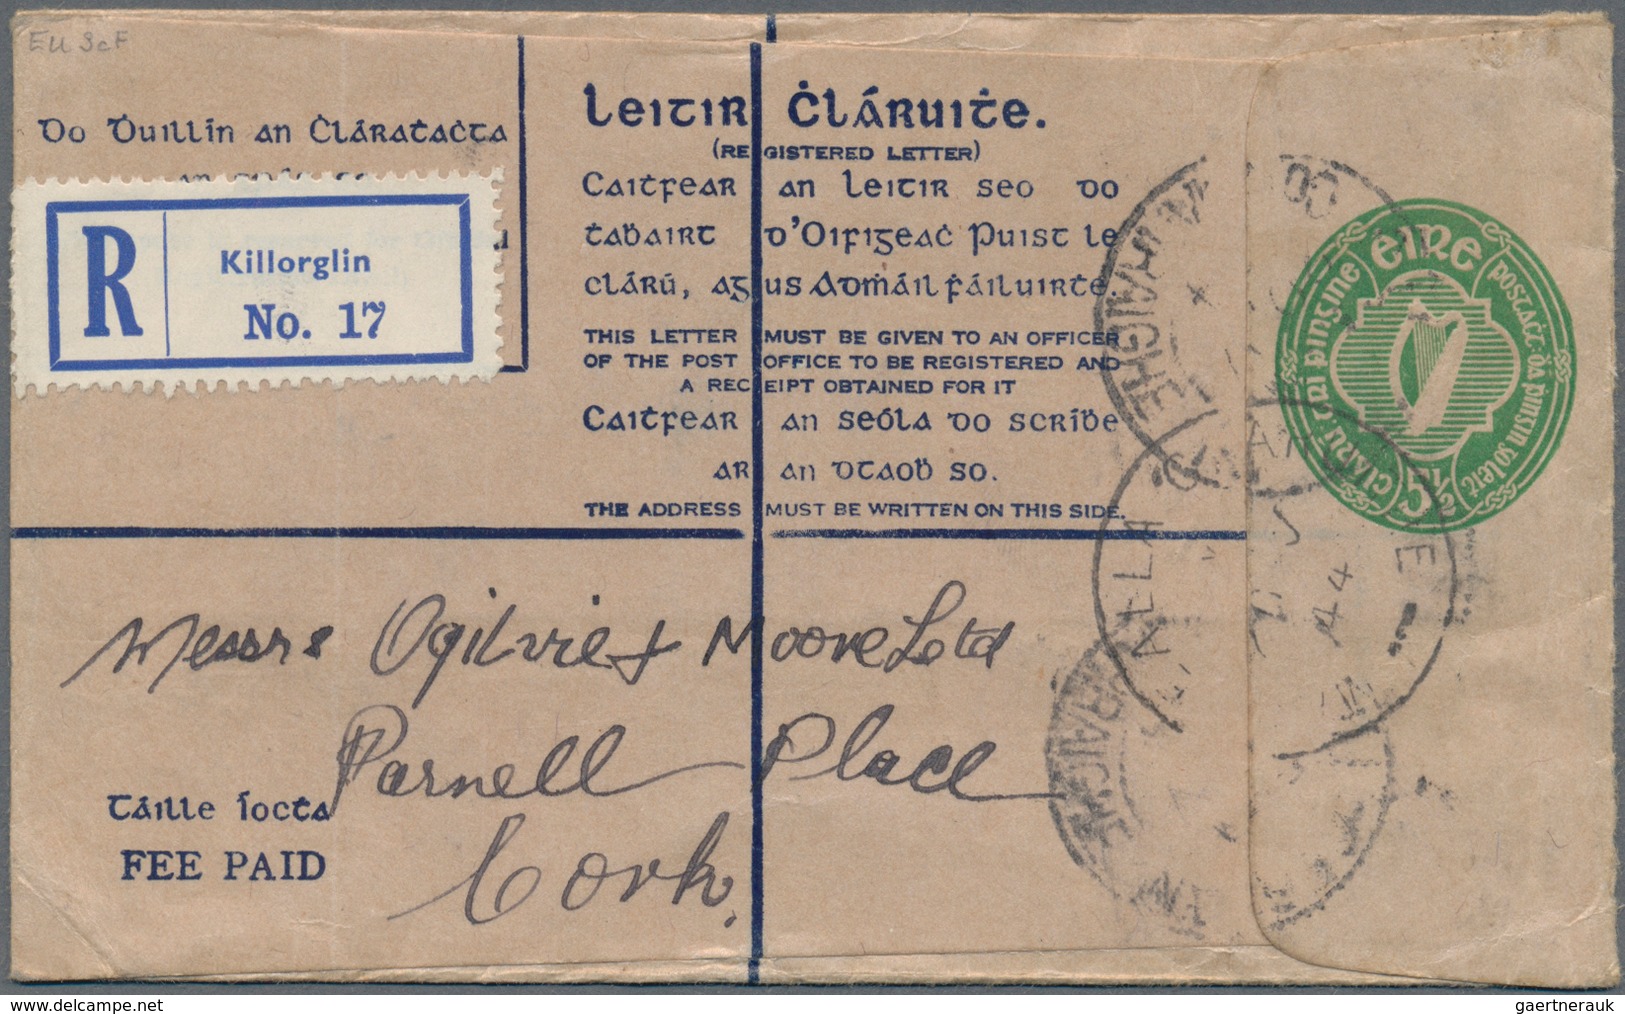 EU 3cF
Do Ḋuillín an Ċláraṫaċta
R
Killorglin
No. 17
Leitir Ċláruiṫe.
(REGISTERED LETTER)
Caitfear an leitir seo do
ṫaḃairt d'Oifigeaċ Puist le
clárú, agus Admáil ḟáiluirṫe.
THIS LETTER MUST BE GIVEN TO AN OFFICER
OF THE POST OFFICE TO BE REGISTERED AND
A RECEIPT OBTAINED FOR IT
Caitfear an seóla do scríḃe
ar an dtaoḃ so.
THE ADDRESS MUST BE WRITTEN ON THIS SIDE.
éire
postaċt ḋá pinsin go leiṫ
cláru trí pingine
5½
44
Messrs Ogilvie & Moore Ltd
Parnell Place
Cork.
Táille íocṫa
FEE PAID
delcampe.net
gaertnerauk